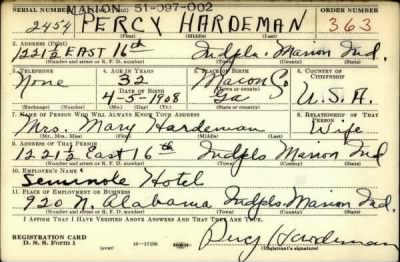 SERIAL NUMBER MARION 51-097-002 ORDER NUMBER
2454 PERCY HARDEMAN 363
(First) (Middle) (Last)
2. ADDRESS (Print)
1221½ EAST 16th Indpls. Marion Ind.
(Number and street or R. F. D. number) (Town) (County) (State)
3. TELEPHONE 4. AGE IN YEARS 5. PLACE OF BIRTH 6. COUNTRY OF CITIZENSHIP
None 32 Macon
DATE OF BIRTH (Town or county)
4-5-1908 Ga U.S.A.
(Exchange) (Number) (Mo.) (Day) (Yr.) (State or country)
7. NAME OF PERSON WHO WILL ALWAYS KNOW YOUR ADDRESS 8. RELATIONSHIP OF THAT PERSON
Mrs. Mary Hardeman Wife
(Mr., Mrs., Miss) (First) (Middle) (Last)
9. ADDRESS OF THAT PERSON
1221½ East 16th Indpls Marion Ind
(Number and street or R. F. D. number) (Town) (County) (State)
10. EMPLOYER'S NAME
Seminole Hotel
11. PLACE OF EMPLOYMENT OR BUSINESS
920 N. Alabama Indpls. Marion Ind.
(Number and street or R. F. D. number) (Town) (County) (State)
I AFFIRM THAT I HAVE VERIFIED ABOVE ANSWERS AND THAT THEY ARE TRUE.
REGISTRATION CARD
D. S. S. Form 1 16-17105 Percy Hardeman
(Registrant's signature)